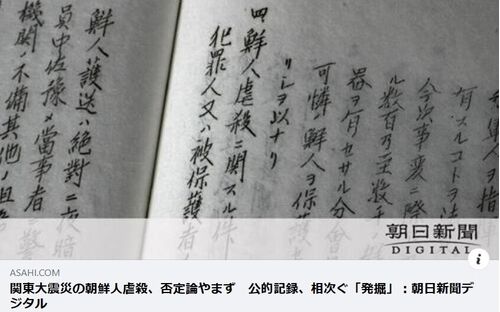 有スルコトヲ
今次事変ニ際
ル数百乃至数千
器ヲ有セサル分會
可憐ノ鮮人ヲ保護
リシヲ以ナリ
四 鮮人虐殺ニ関スル件
犯罪人又ハ被保護者
鮮人護送ハ絶對ニ夜暗
員中佐豫メ當事者
機関ノ不備其他ノ
朝日新聞
DIGITAL
ASAHI.COM
関東大震災の朝鮮人虐殺、否定論やまず　公的記録、相次ぐ「発掘」：朝日新聞デ
ジタル